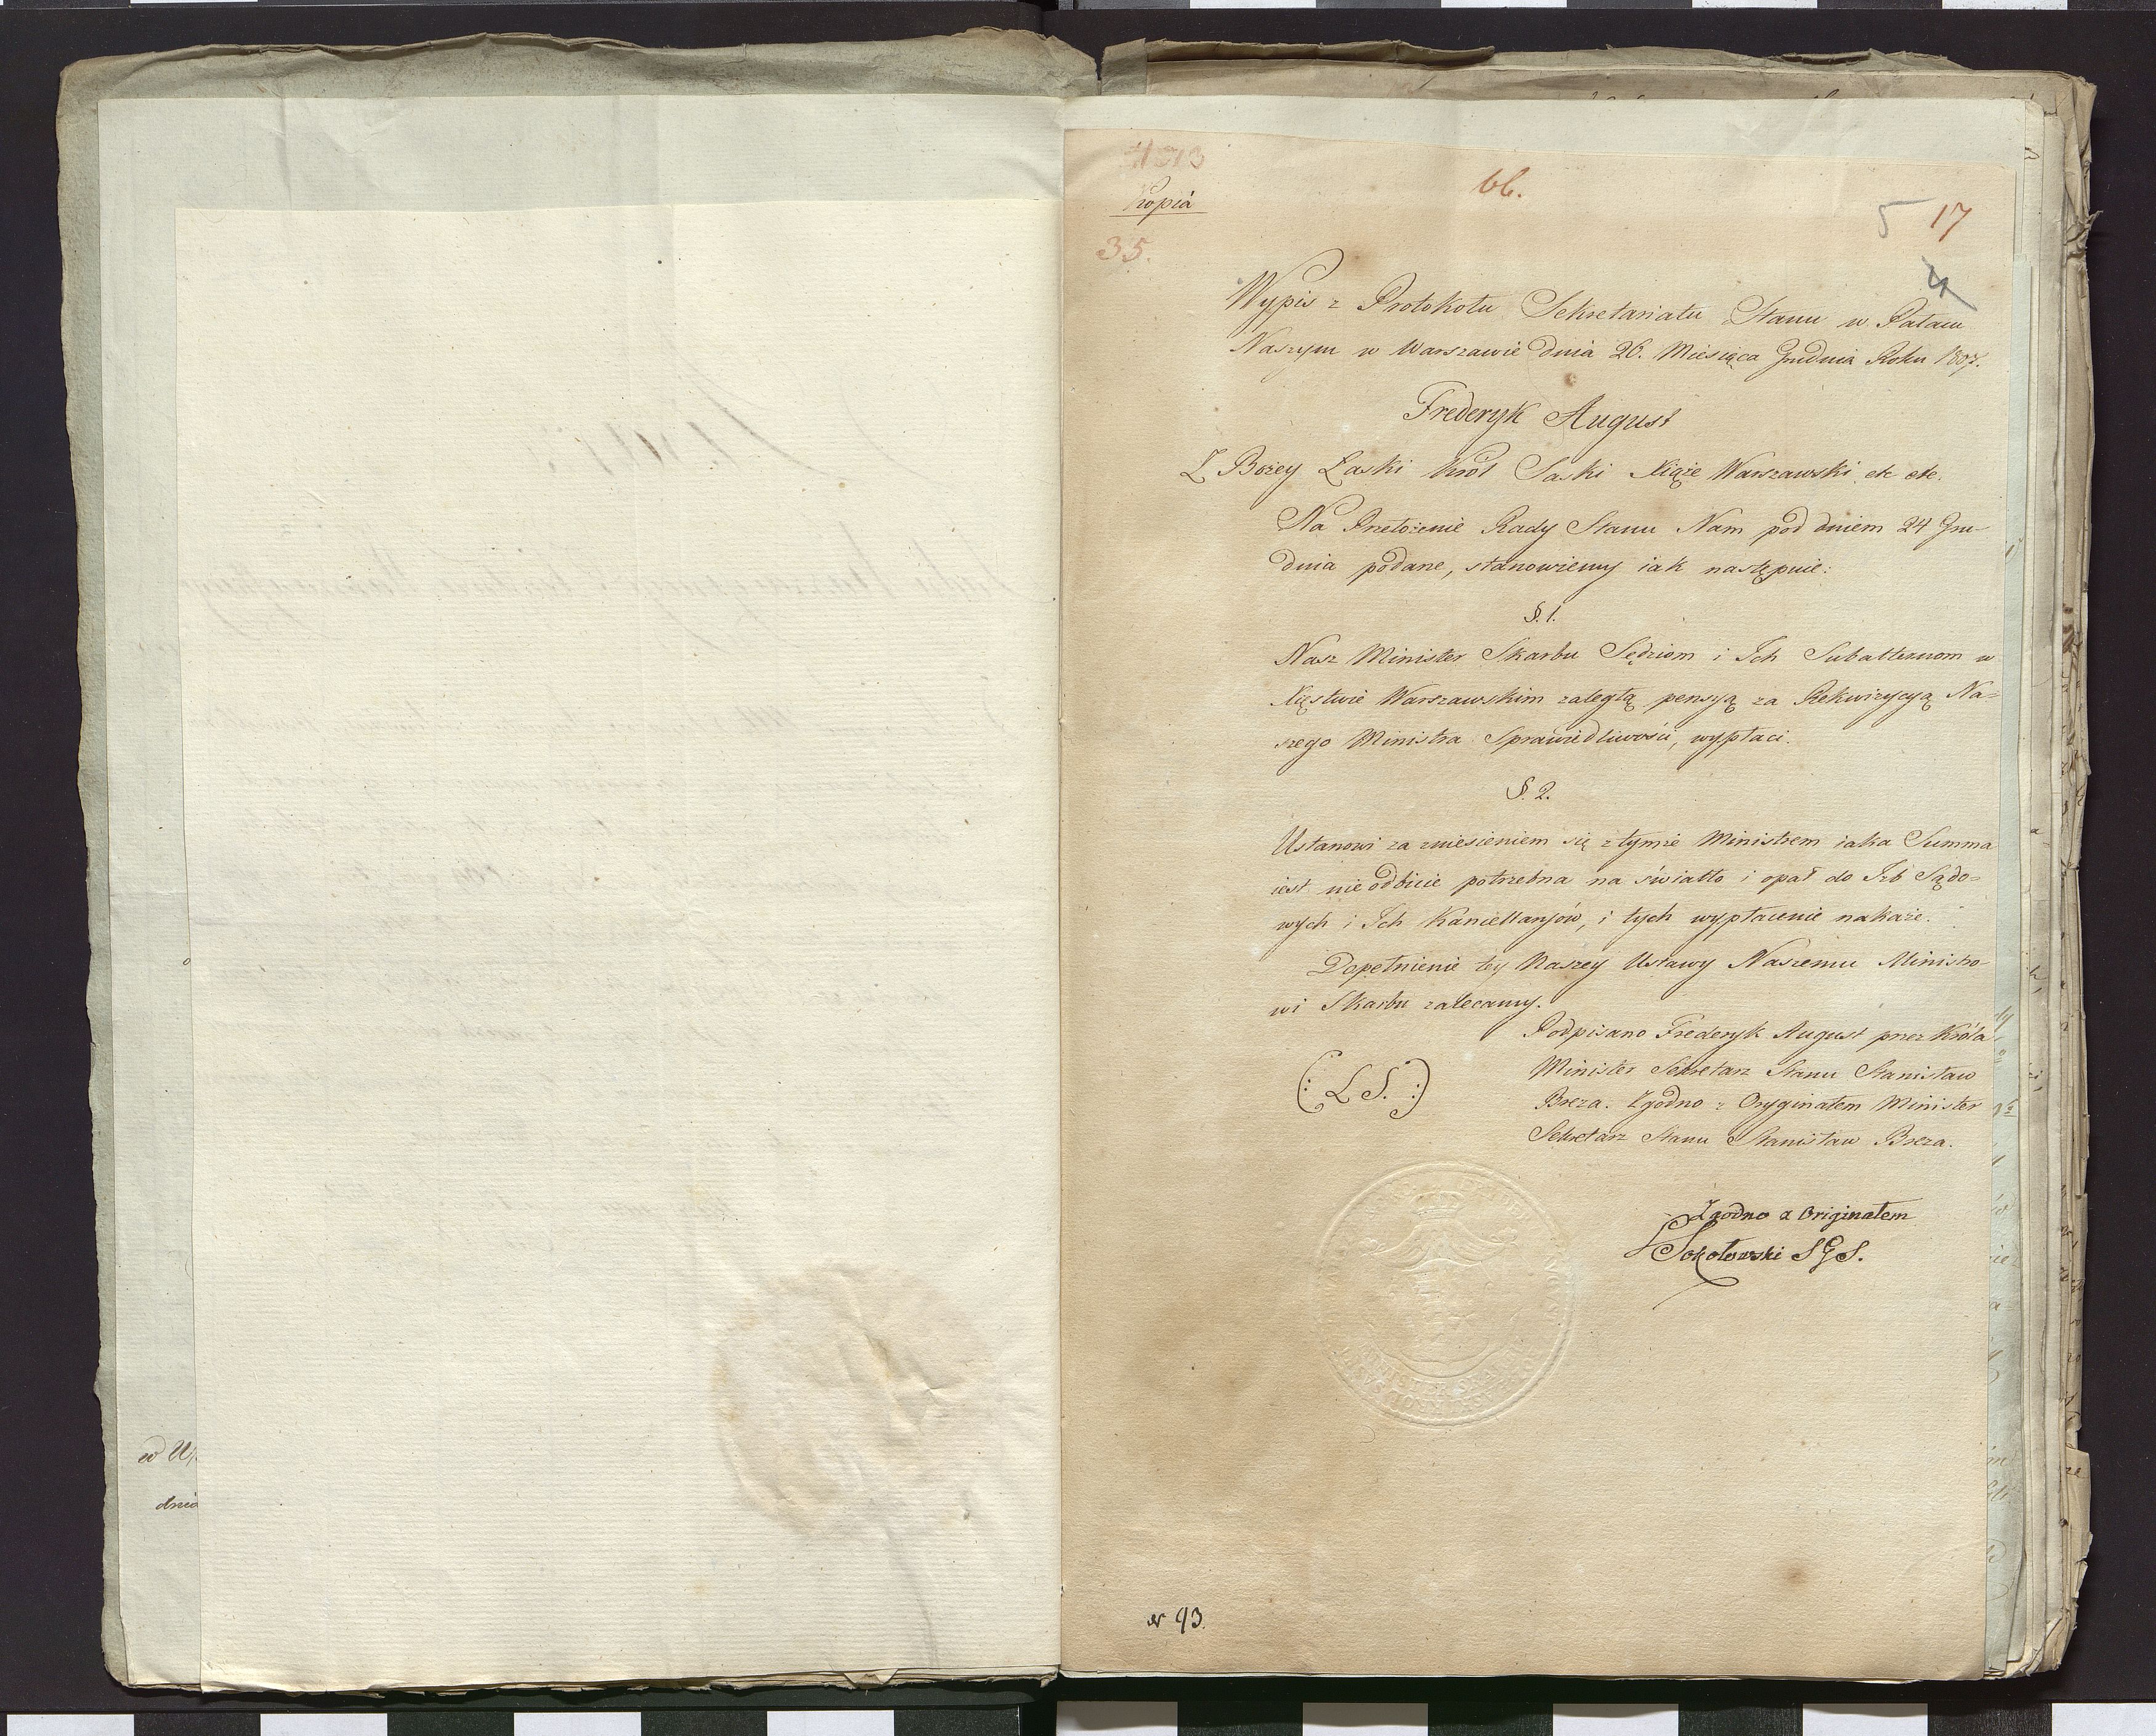 Kopia
35.
bb.
5 17
4
Wypis z Protokołu Sekretariatu Stanu w Pałacu
Naszym w Warszawie dnia 26. Miesiąca Grudnia Roku 1807.
Frederyk August
Z Bożey Łaski Król Saski Xiąże Warszawski etc etc.
Na Przełożenie Rady Stanu Nam pod dniem 24 Gru-
dnia podane, stanowiemy iak następuie:
§. 1.
Nasz Minister Skarbu Sędziom i Ich Subalternom w
Xięstwie Warszawskim zaległą pensyą za Rekwizycyą Na-
szego Ministra Sprawiedliwości, wypłaci.
§. 2.
Ustanowi za zniesieniem się z tymże Ministrem iaka Summa
iest nieodbicie potrzebna na światło i opał do Izb Sądo-
wych i Ich Kancellaryów, i tych wypłacenie nakaże.
Dopełnienie tey Naszey Ustawy Naszemu Ministro-
wi Skarbu zalecamy.
Podpisano Frederyk August przez Króla
(: L S. :)
Minister Sekretarz Stanu Stanisław
Breza. Zgodno z Oryginałem Minister
Sekretarz Stanu Stanisław Breza.
Zgodno z Originałem
Sokołowski SGS.
N 93.
ed
dnia